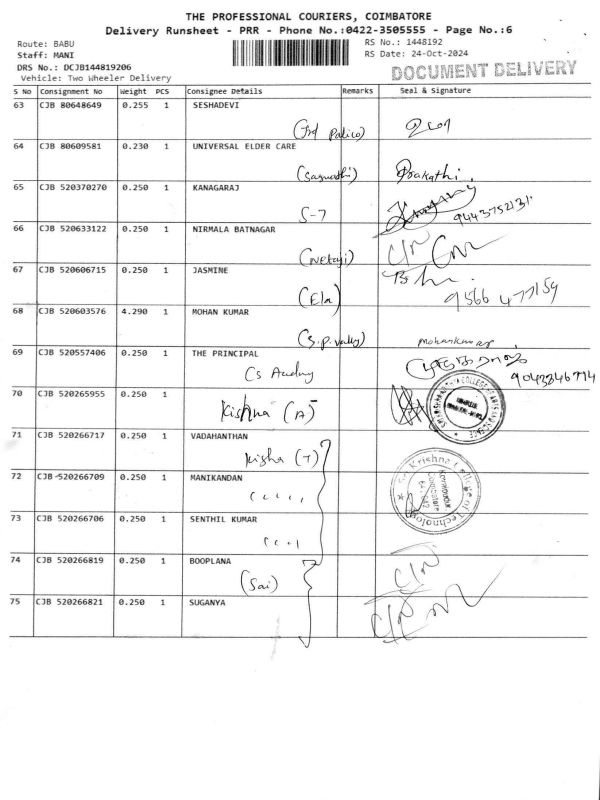 THE PROFESSIONAL COURIERS, COIMBATORE
Delivery Runsheet - PRR - Phone No.:0422-3505555 - Page No.:6
Route: BABU
RS No.: 1448192
Staff: MANI
RS Date: 24-Oct-2024
DRS No.: DCJB144819206
DOCUMENT DELIVERY
Vehicle: Two Wheeler Delivery
S No Consignment No Weight PCS Consignee Details Remarks Seal & Signature
63 CJB 80648649 0.255 1 SESHADEVI
64 CJB 80609581 0.230 1 UNIVERSAL ELDER CARE
Prakathi
65 CJB 520370270 0.250 1 KANAGARAJ
S-7
66 CJB 520633122 0.250 1 NIRMALA BATNAGAR
(Netaji)
67 CJB 520606715 0.250 1 JASMINE
(Ela)
9566 477159
68 CJB 520603576 4.290 1 MOHAN KUMAR
(S.p. valley)
mohankumar
69 CJB 520557406 0.250 1 THE PRINCIPAL
9043346714
70 CJB 520265955 0.250 1
Krishna (A)
71 CJB 520266717 0.250 1 VADAHANTHAN
Krisha (T)
72 CJB 520266709 0.250 1 MANIKANDAN
Sri Krishna College of Technology
Kovaipudur
Coimbatore
641 042
73 CJB 520266706 0.250 1 SENTHIL KUMAR
74 CJB 520266819 0.250 1 BOOPLANA
(Sai)
75 CJB 520266821 0.250 1 SUGANYA